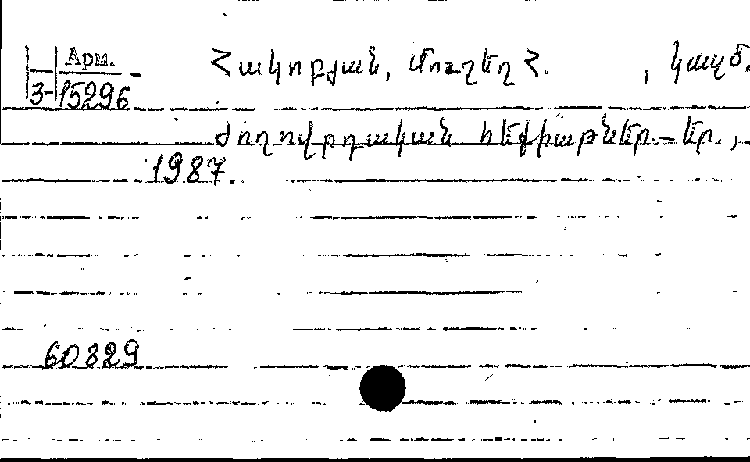 Арм.
3-15296
Հակոբյան, Մուշեղ Հ. , կազմ.
Ժողովրդական հեքիաթներ.–Եր.,
1987.
60329